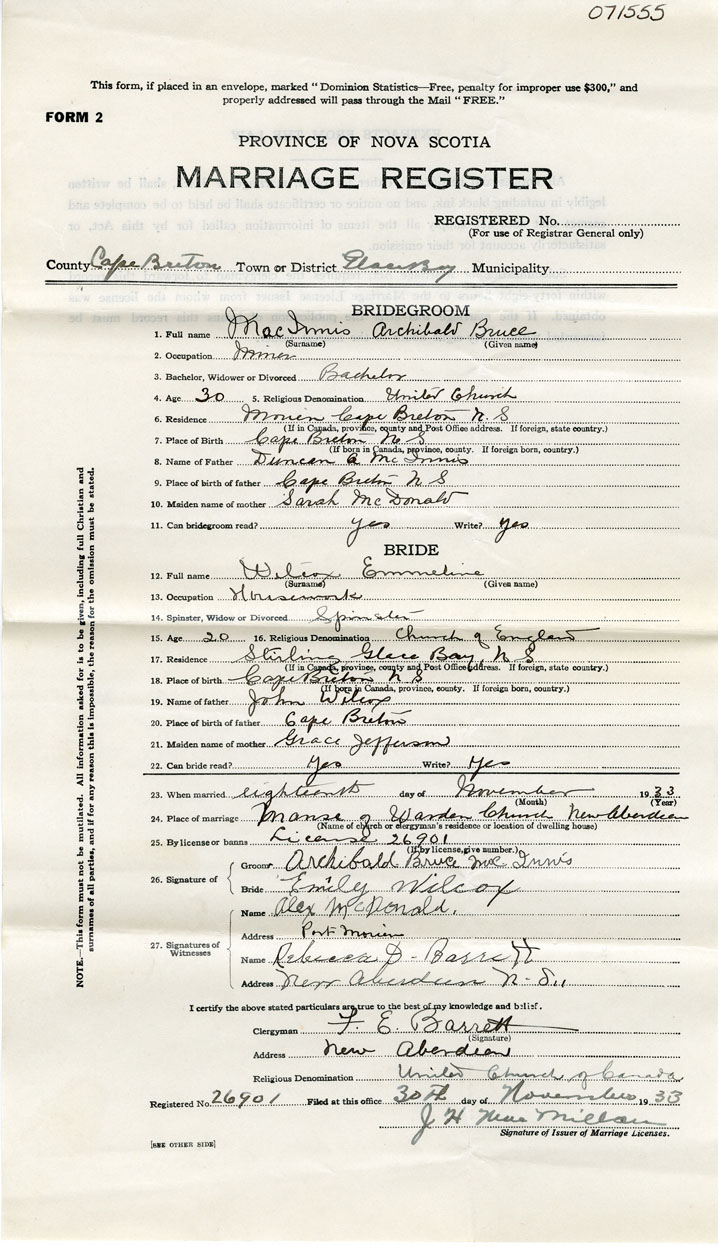 071555
This form, if placed in an envelope, marked "Dominion Statistics—Free, penalty for improper use $300," and
properly addressed will pass through the Mail "FREE."
FORM 2
PROVINCE OF NOVA SCOTIA
MARRIAGE REGISTER
REGISTERED No.
(For use of Registrar General only)
County Cape Breton Town or District Glace Bay Municipality
BRIDEGROOM
1. Full name MacInnis Archibald Bruce
(Surname) (Given name)
2. Occupation Miner
3. Bachelor, Widower or Divorced Bachelor
4. Age 30 5. Religious Denomination United Church
6. Residence Morien Cape Breton N.S
(If in Canada, province, county and Post Office address. If foreign, state country.)
7. Place of Birth Cape Breton N S
(If born in Canada, province, county. If foreign born, country.)
8. Name of Father Duncan A McInnis
9. Place of birth of father Cape Breton N S
10. Maiden name of mother Sarah McDonald
11. Can bridegroom read? Yes Write? Yes
BRIDE
12. Full name Wilcox Emmeline
(Surname) (Given name)
13. Occupation Housework
14. Spinster, Widow or Divorced Spinster
15. Age 20 16. Religious Denomination Church of England
17. Residence Sterling Glace Bay, N.S
(If in Canada, province, county and Post Office address. If foreign, state country.)
18. Place of birth Cape Breton N S
(If born in Canada, province, county. If foreign born, country.)
19. Name of father John Wilcox
20. Place of birth of father Cape Breton
21. Maiden name of mother Grace Jefferson
22. Can bride read? Yes Write? Yes
23. When married eighteenth day of November 1933
(Month) (Year)
24. Place of marriage Manse of Warden Church New Aberdeen
(Name of church or clergyman's residence or location of dwelling house)
25. By license or banns License 26901
(If by license, give number.)
26. Signature of
Groom Archibald Bruce McInnis
Bride Emily Wilcox
27. Signatures of Witnesses
Name Alex McDonald.
Address Port Morien
Name Rebecca D. Barrett
Address New Aberdeen N.S.,
I certify the above stated particulars are true to the best of my knowledge and belief.
Clergyman F. E. Barrett
(Signature)
Address New Aberdeen
Religious Denomination United Church of Canada
Registered No. 26901 Filed at this office 30th day of November 1933
J H MacMillan
Signature of Issuer of Marriage Licenses.
[SEE OTHER SIDE]
NOTE.—This form must not be mutilated. All information asked for is to be given, including full Christian and
surnames of all parties, and if for any reason this is impossible, the reason for the omission must be stated.